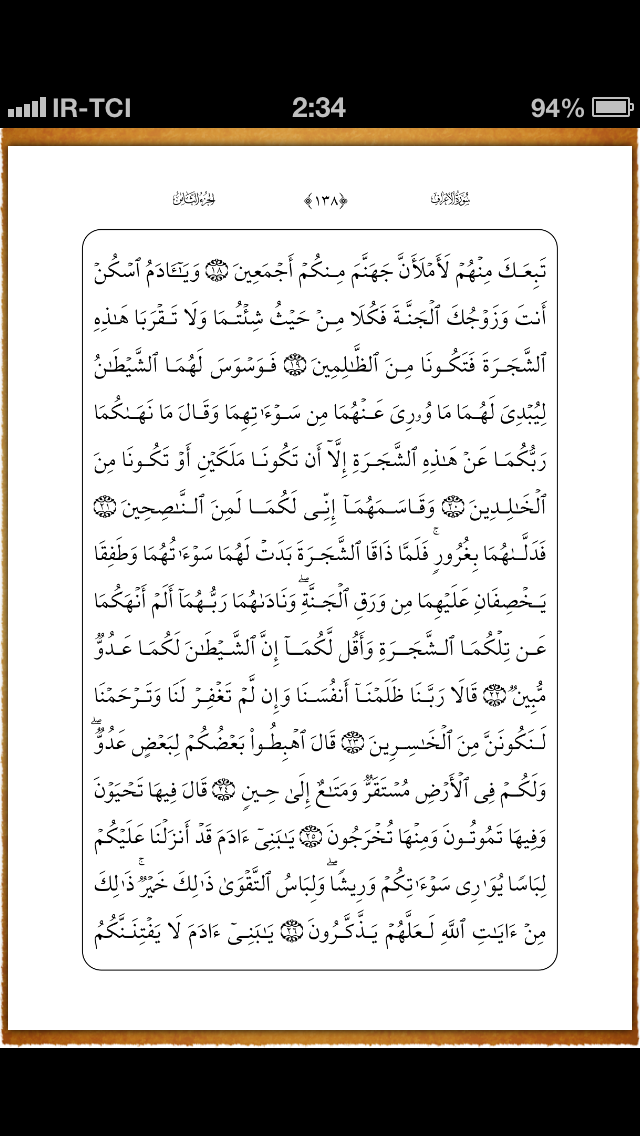 IR-TCI 2:34 94%
سُورَةُ الأَعۡرَافِ ﴿١٣٨﴾ الجُزءُ الثَّامِنُ
تَبِعَكَ مِنۡهُمۡ لَأَمۡلَأَنَّ جَهَنَّمَ مِنكُمۡ أَجۡمَعِينَ ١٨ وَيَٰٓـَٔادَمُ ٱسۡكُنۡ
أَنتَ وَزَوۡجُكَ ٱلۡجَنَّةَ فَكُلَا مِنۡ حَيۡثُ شِئۡتُمَا وَلَا تَقۡرَبَا هَٰذِهِ
ٱلشَّجَرَةَ فَتَكُونَا مِنَ ٱلظَّٰلِمِينَ ١٩ فَوَسۡوَسَ لَهُمَا ٱلشَّيۡطَٰنُ
لِيُبۡدِيَ لَهُمَا مَا وُۥرِيَ عَنۡهُمَا مِن سَوۡءَٰتِهِمَا وَقَالَ مَا نَهَىٰكُمَا
رَبُّكُمَا عَنۡ هَٰذِهِ ٱلشَّجَرَةِ إِلَّآ أَن تَكُونَا مَلَكَيۡنِ أَوۡ تَكُونَا مِنَ
ٱلۡخَٰلِدِينَ ٢٠ وَقَاسَمَهُمَآ إِنِّي لَكُمَا لَمِنَ ٱلنَّٰصِحِينَ ٢١
فَدَلَّىٰهُمَا بِغُرُورٖۚ فَلَمَّا ذَاقَا ٱلشَّجَرَةَ بَدَتۡ لَهُمَا سَوۡءَٰتُهُمَا وَطَفِقَا
يَخۡصِفَانِ عَلَيۡهِمَا مِن وَرَقِ ٱلۡجَنَّةِۖ وَنَادَىٰهُمَا رَبُّهُمَآ أَلَمۡ أَنۡهَكُمَا
عَن تِلۡكُمَا ٱلشَّجَرَةِ وَأَقُل لَّكُمَآ إِنَّ ٱلشَّيۡطَٰنَ لَكُمَا عَدُوّٞ
مُّبِينٞ ٢٢ قَالَا رَبَّنَا ظَلَمۡنَآ أَنفُسَنَا وَإِن لَّمۡ تَغۡفِرۡ لَنَا وَتَرۡحَمۡنَا
لَنَكُونَنَّ مِنَ ٱلۡخَٰسِرِينَ ٢٣ قَالَ ٱهۡبِطُواْ بَعۡضُكُمۡ لِبَعۡضٍ عَدُوّٞۖ
وَلَكُمۡ فِي ٱلۡأَرۡضِ مُسۡتَقَرّٞ وَمَتَٰعٌ إِلَىٰ حِينٖ ٢٤ قَالَ فِيهَا تَحۡيَوۡنَ
وَفِيهَا تَمُوتُونَ وَمِنۡهَا تُخۡرَجُونَ ٢٥ يَٰبَنِيٓ ءَادَمَ قَدۡ أَنزَلۡنَا عَلَيۡكُمۡ
لِبَاسٗا يُوَٰرِي سَوۡءَٰتِكُمۡ وَرِيشٗاۖ وَلِبَاسُ ٱلتَّقۡوَىٰ ذَٰلِكَ خَيۡرٞۚ ذَٰلِكَ
مِنۡ ءَايَٰتِ ٱللَّهِ لَعَلَّهُمۡ يَذَّكَّرُونَ ٢٦ يَٰبَنِيٓ ءَادَمَ لَا يَفۡتِنَنَّكُمُ